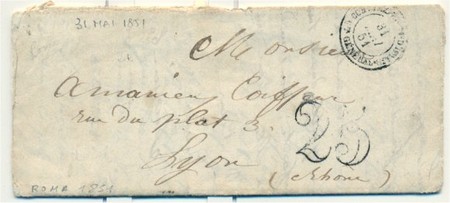 31 MAI 1851
Monsieur
Amanieu Coiffeur
rue du plat 3.
Lyon
(Rhône)
25
31
51
ROMA 1851